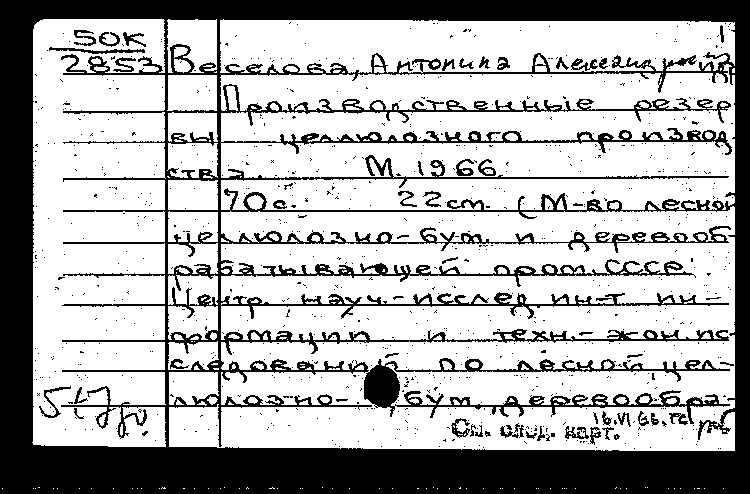 1
50К
2853
Веселова, Антонина
Производственные резер-
вы целлюлозного производ-
ства. М., 1966.
70 с. 22 см. (М-во лесной
целлюлозно-бум. и деревооб-
рабатывающей пром. СССР.
Центр. науч.-исслед. ин-т ин-
формации и техн.-экон. ис-
следований по лесной, цел-
люлозно-, бум., деревообра-
См. след. карт.
16.VI.66.